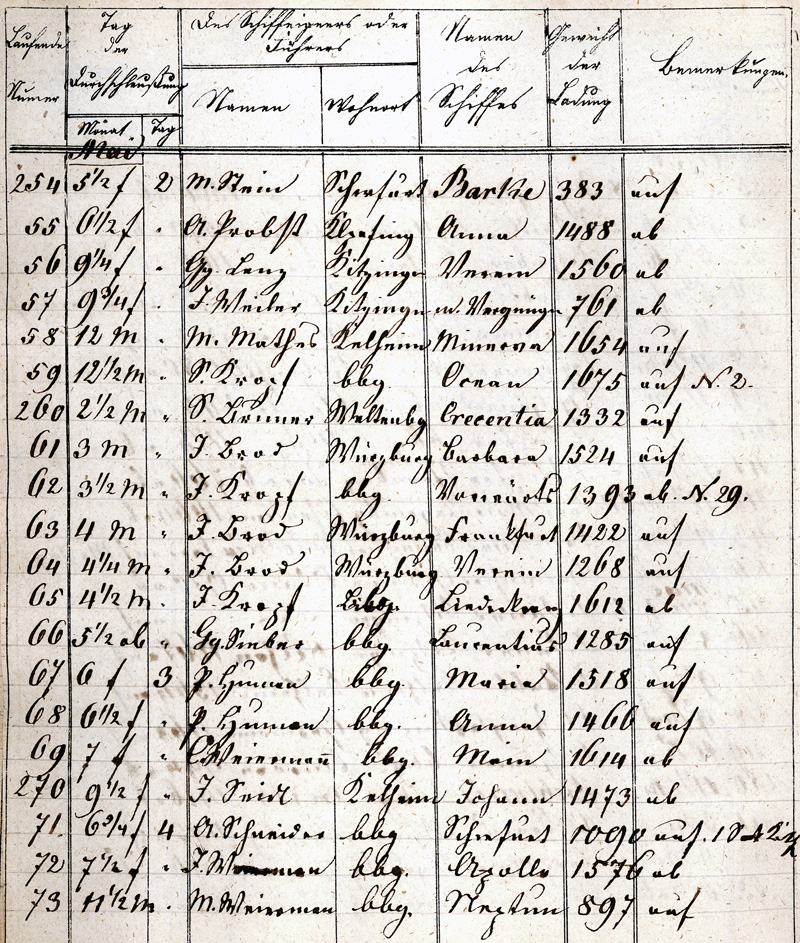 Laufende Numer
Tag der Durchschleußung
Des Schiffeigners oder Führers
Namen des Schiffes
Gewicht der Ladung
Bemerkungen.
Monat Tag Namen Wohnort
Mai
254 5½ f 2 M. Stein Schefurt Barke 383 auf
55 6½ f " A. Probst Anna 1488 ab
56 9¼ f " Gg. Lenz Kitzingen Verein 1560 ab
57 9¾ f " J. Weiler Kitzingen 761 ab
58 12 M " M. Mathes Kelheim Minerva 1654 auf
59 12½ M " S. Kropf bbg. Ocean 1675 auf N. 2.
260 2½ M " S. Weltenbg Crecentia 1332 auf
61 3 M " J. Brod Würzburg Barbara 1524 auf
62 3½ M " J. Kropf bbg. Vorwärts 1393 ab. N. 29.
63 4 M " J. Brod Würzburg Frankfurt 1422 auf
64 4¼ M " J. Brod Würzburg Verein 1268 auf
65 4½ M " J. Kropf 1612 ab
66 5½ ab " Gg. Sieber bbg. Laurentius 1285 auf
67 6 f 3 P. Human bbg. Maria 1518 auf
68 6½ f " P. Human bbg. Anna 1466 auf
69 7 f " Weiermann bbg. Main 1614 ab
270 9½ f " J. Seidl Kelheim Johann 1473 ab
71. 6¾ f 4 A. Schneider bbg Schefurt 1090 auf.
72 7½ f " bbg. Apollo 1576 ab
73 11½ M " M. Weierman bbg. Neptun 897 auf